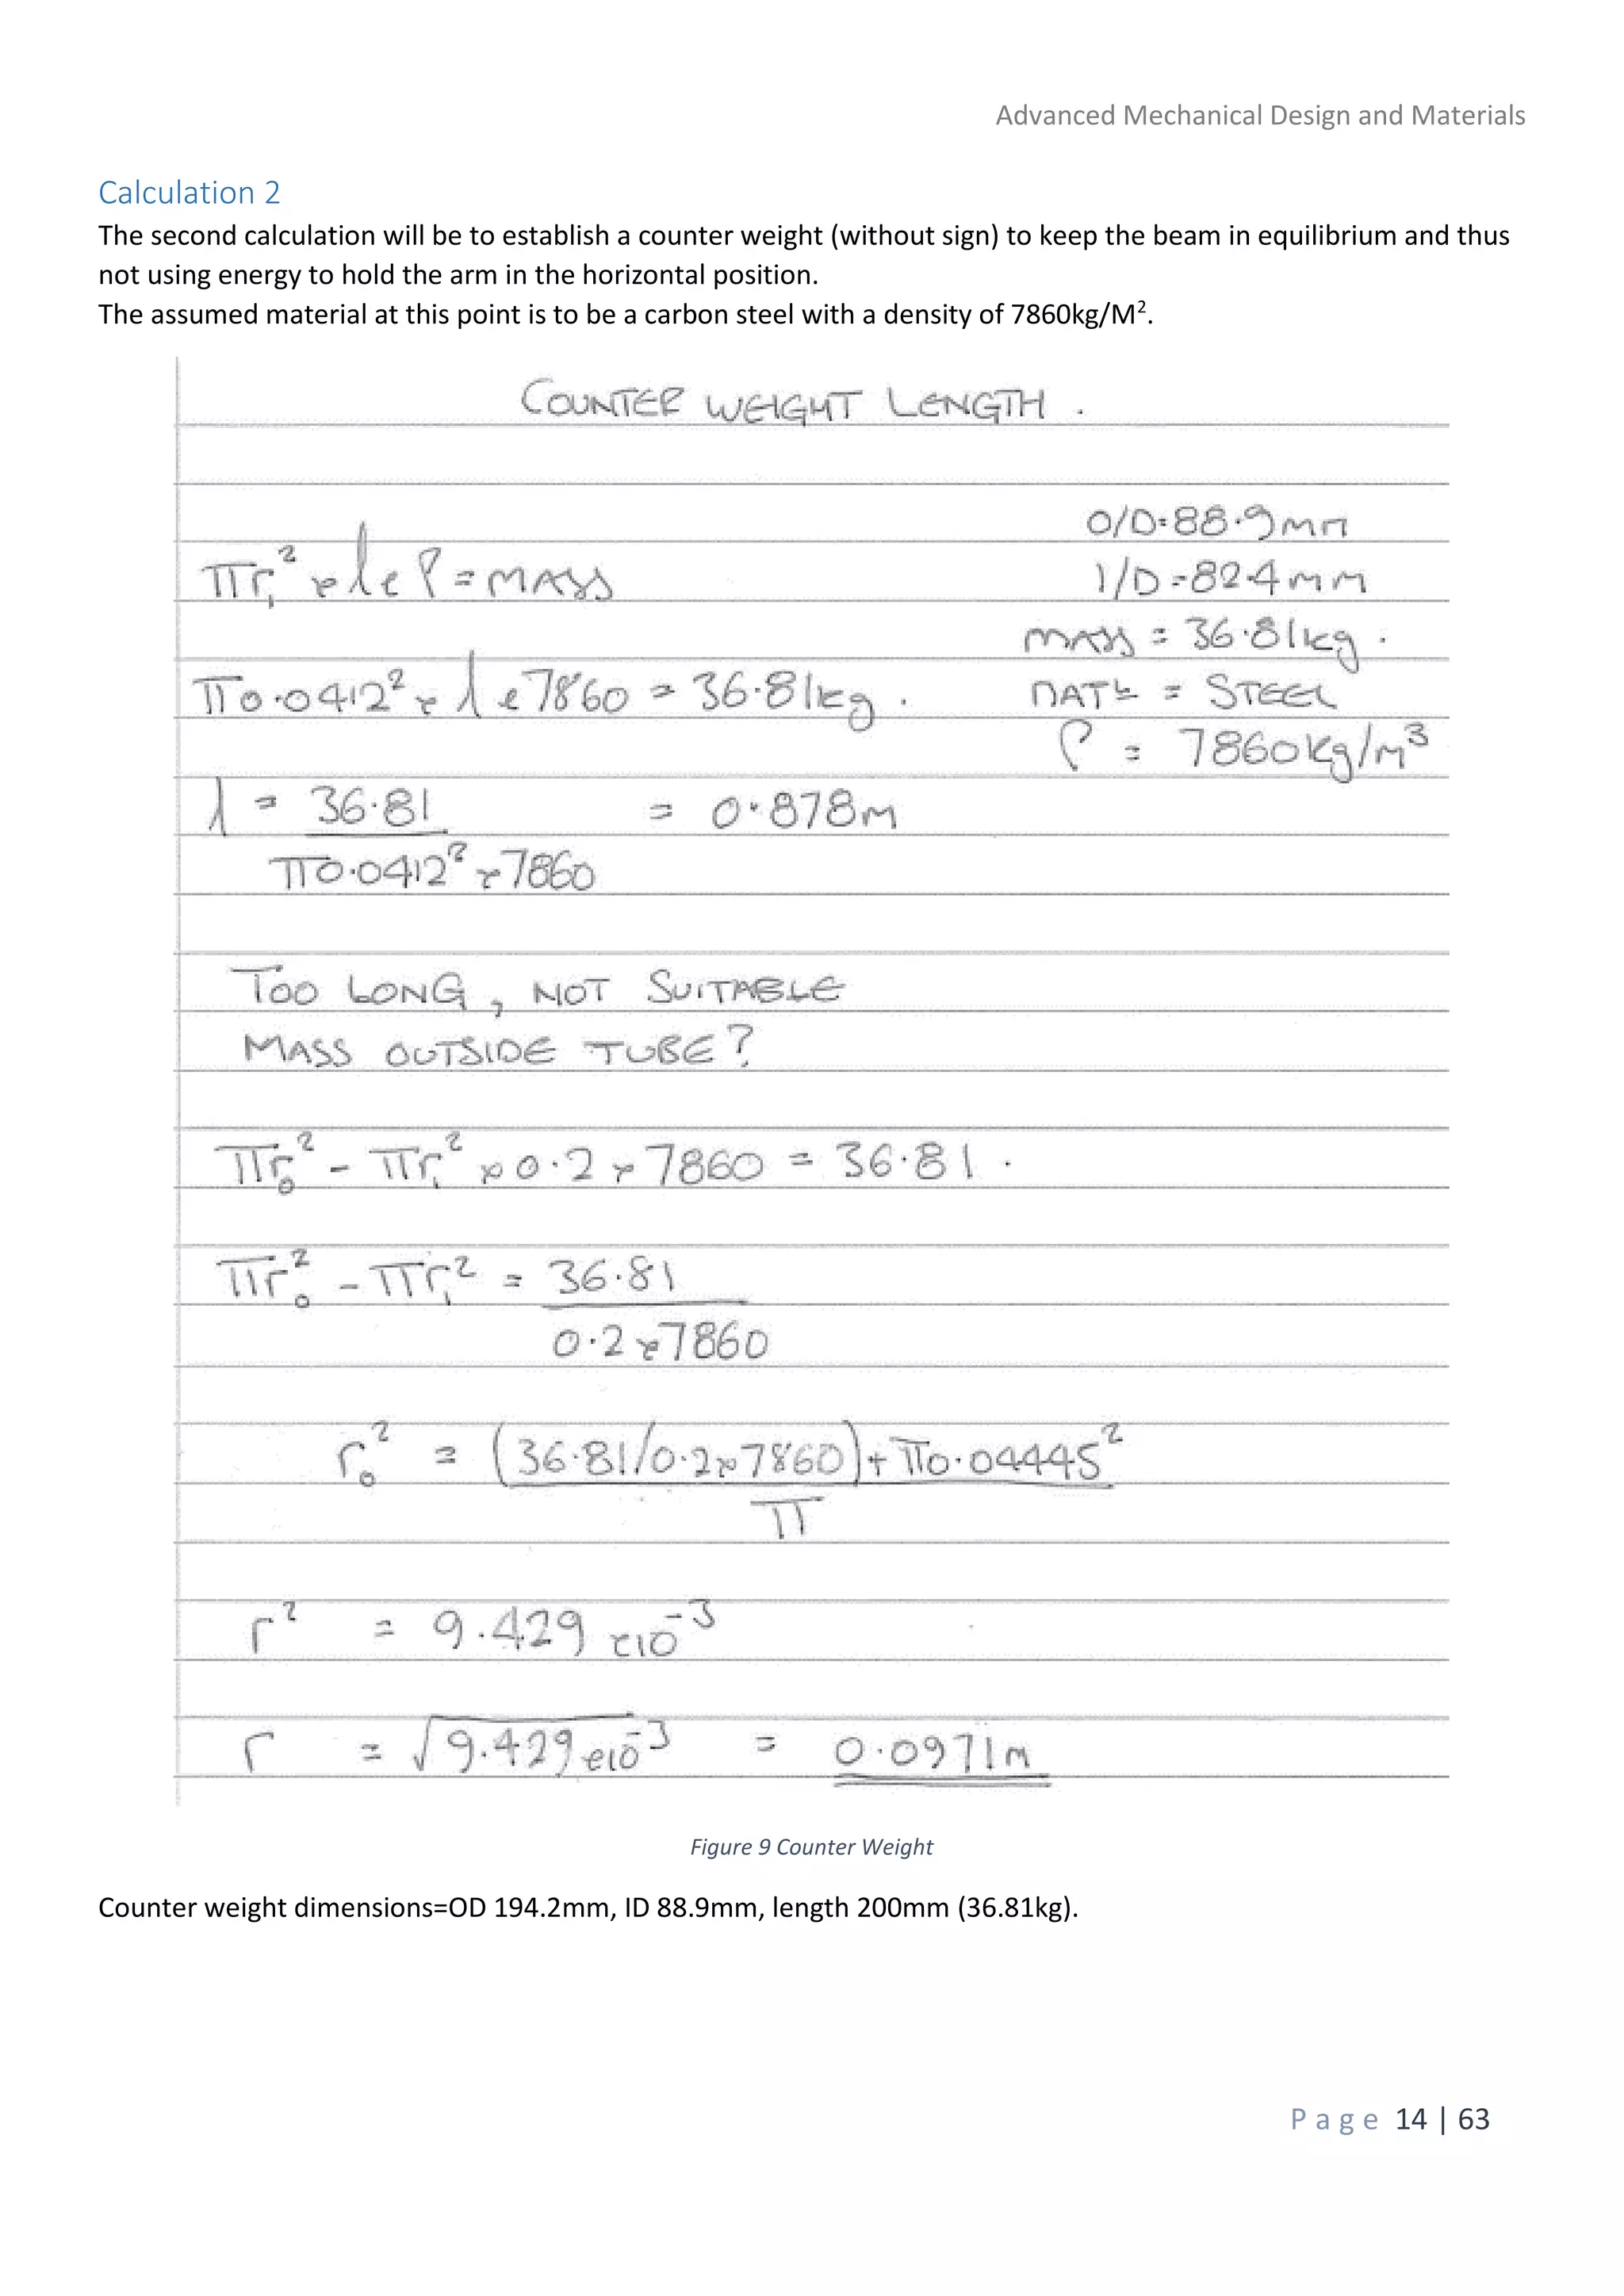 Advanced Mechanical Design and Materials
Calculation 2
The second calculation will be to establish a counter weight (without sign) to keep the beam in equilibrium and thus
not using energy to hold the arm in the horizontal position.
The assumed material at this point is to be a carbon steel with a density of 7860kg/M².
COUNTER WEIGHT LENGTH .
O/D=88.9mm
πr₁² × l × ρ = MASS
I/D=82.4mm
MASS = 36.81kg .
π0.0412² × l × 7860 = 36.81kg .
MATL = STEEL
ρ = 7860kg/m³
l = 36.81 = 0.878m
π0.0412² × 7860
TOO LONG, NOT SUITABLE
MASS OUTSIDE TUBE?
πr₀² - πr₁² × 0.2 × 7860 = 36.81 .
πr₀² - πr₁² = 36.81
0.2 × 7860
r₀² = (36.81/0.2×7860) + π0.04445²
π
r² = 9.429 ×10⁻³
r = √9.429×10⁻³ = 0.0971m
Figure 9 Counter Weight
Counter weight dimensions=OD 194.2mm, ID 88.9mm, length 200mm (36.81kg).
Page 14 | 63